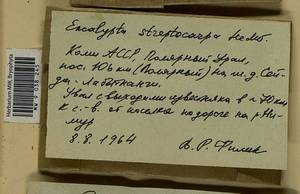 Encalypta streptocarpa Hedw.
Коми АССР, Полярный Урал,
пос. 106 км (Полярный) на ж.д. Сей-
да - Лабытнанги.
Увал с выходами известняка в 2-х км
к с.-в. от поселка по дороге на р.
8.8.1964 В. Р. Филин
Herbarium MW, Bryophyta
MW